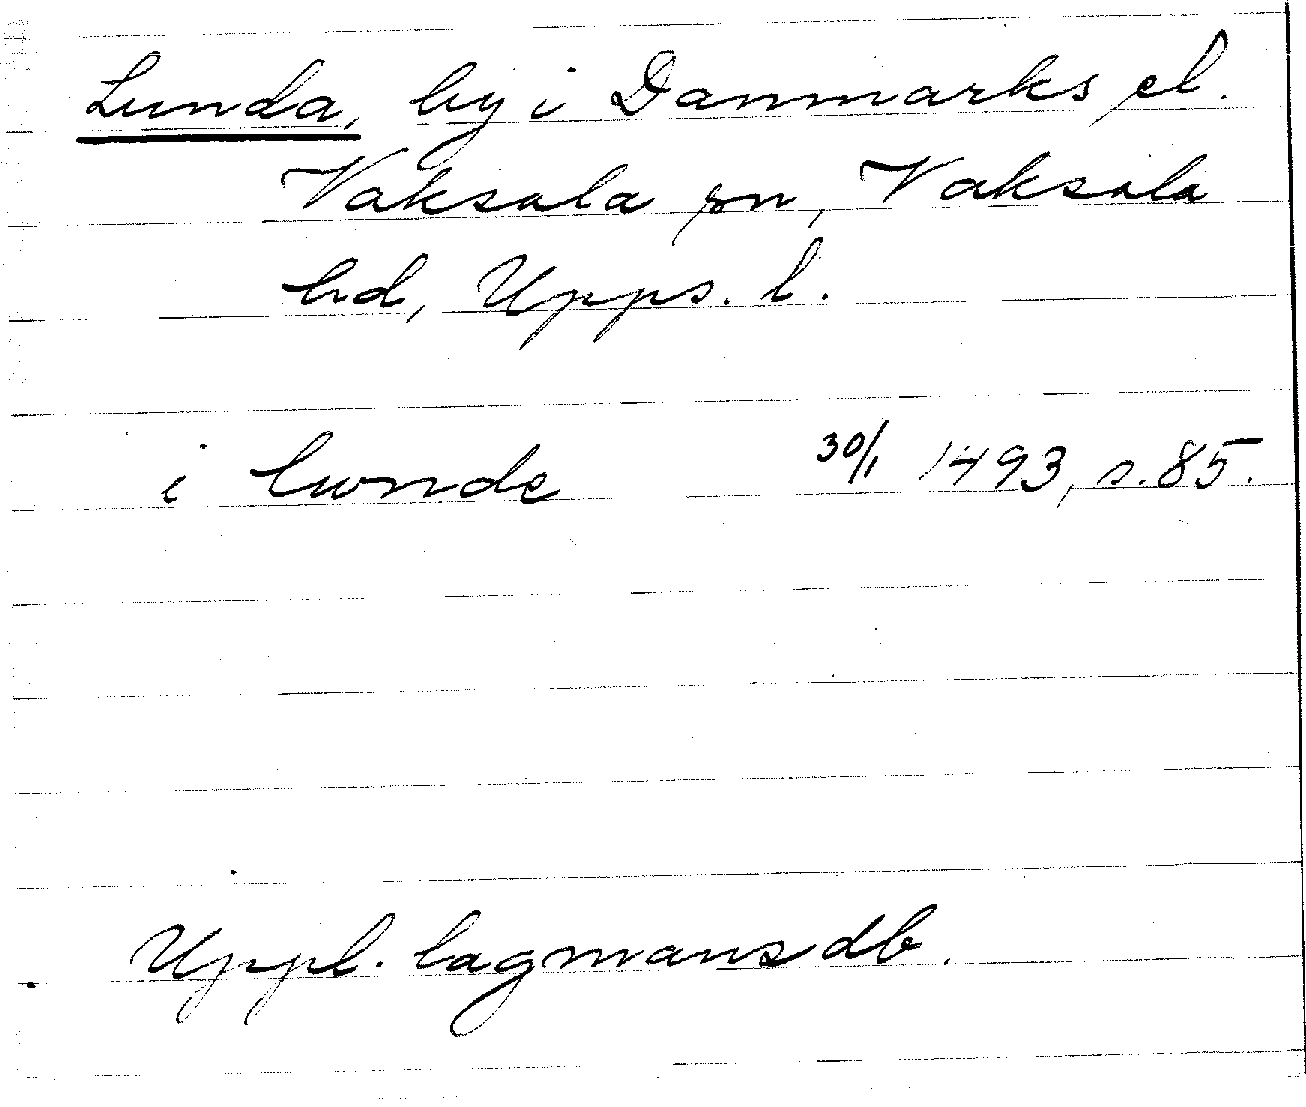 Lunda, by i Danmarks el.
Vaksala sn, Vaksala
hd, Upps. l.
i lunde 30/1 1493, s. 85.
Uppl. lagmansdb.